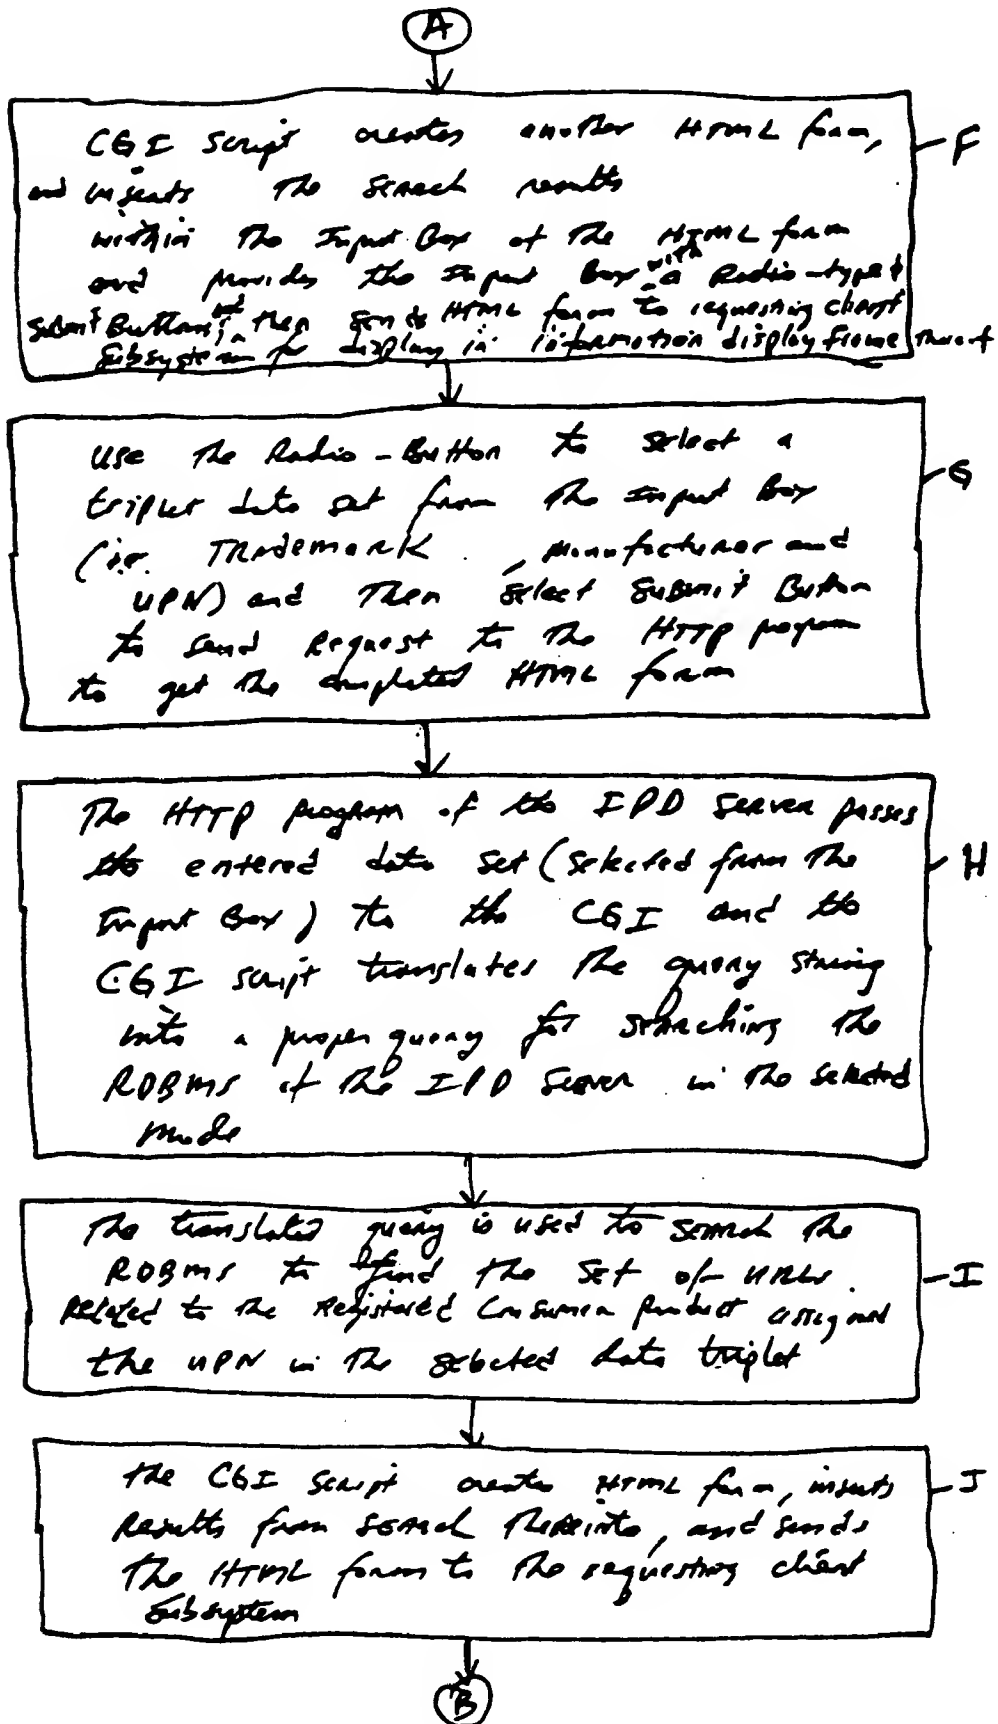 A
CGI script creates another HTML form,
and inserts the search results
within the Input Box of the HTML form
and provides the Input Box with a Radio-type &
Submit Buttons, and then sends HTML form to requesting client
Subsystem for display in information display frame thereof
F
use the Radio-Button to select a
triplet data set from the Input Box
(i.e. TRADEMARK, Manufacturer and
UPN) and Then select Submit Button
to send Request to the HTTP program
to get the completed HTML form
G
The HTTP program of the IPD Server passes
the entered data set (selected from The
Input Box) to the CGI and the
CGI script translates the query string
into a proper query for searching the
RDBMS of the IPD Server in the selected
mode
H
The translated query is used to search the
RDBMS to find the set of URLs
Related to the Registered Consumer Product assigned
the UPN in the selected data triplet
I
the CGI script creates HTML form, inserts
Results from search thereinto, and sends
The HTML form to the requesting client
Subsystem
J
B